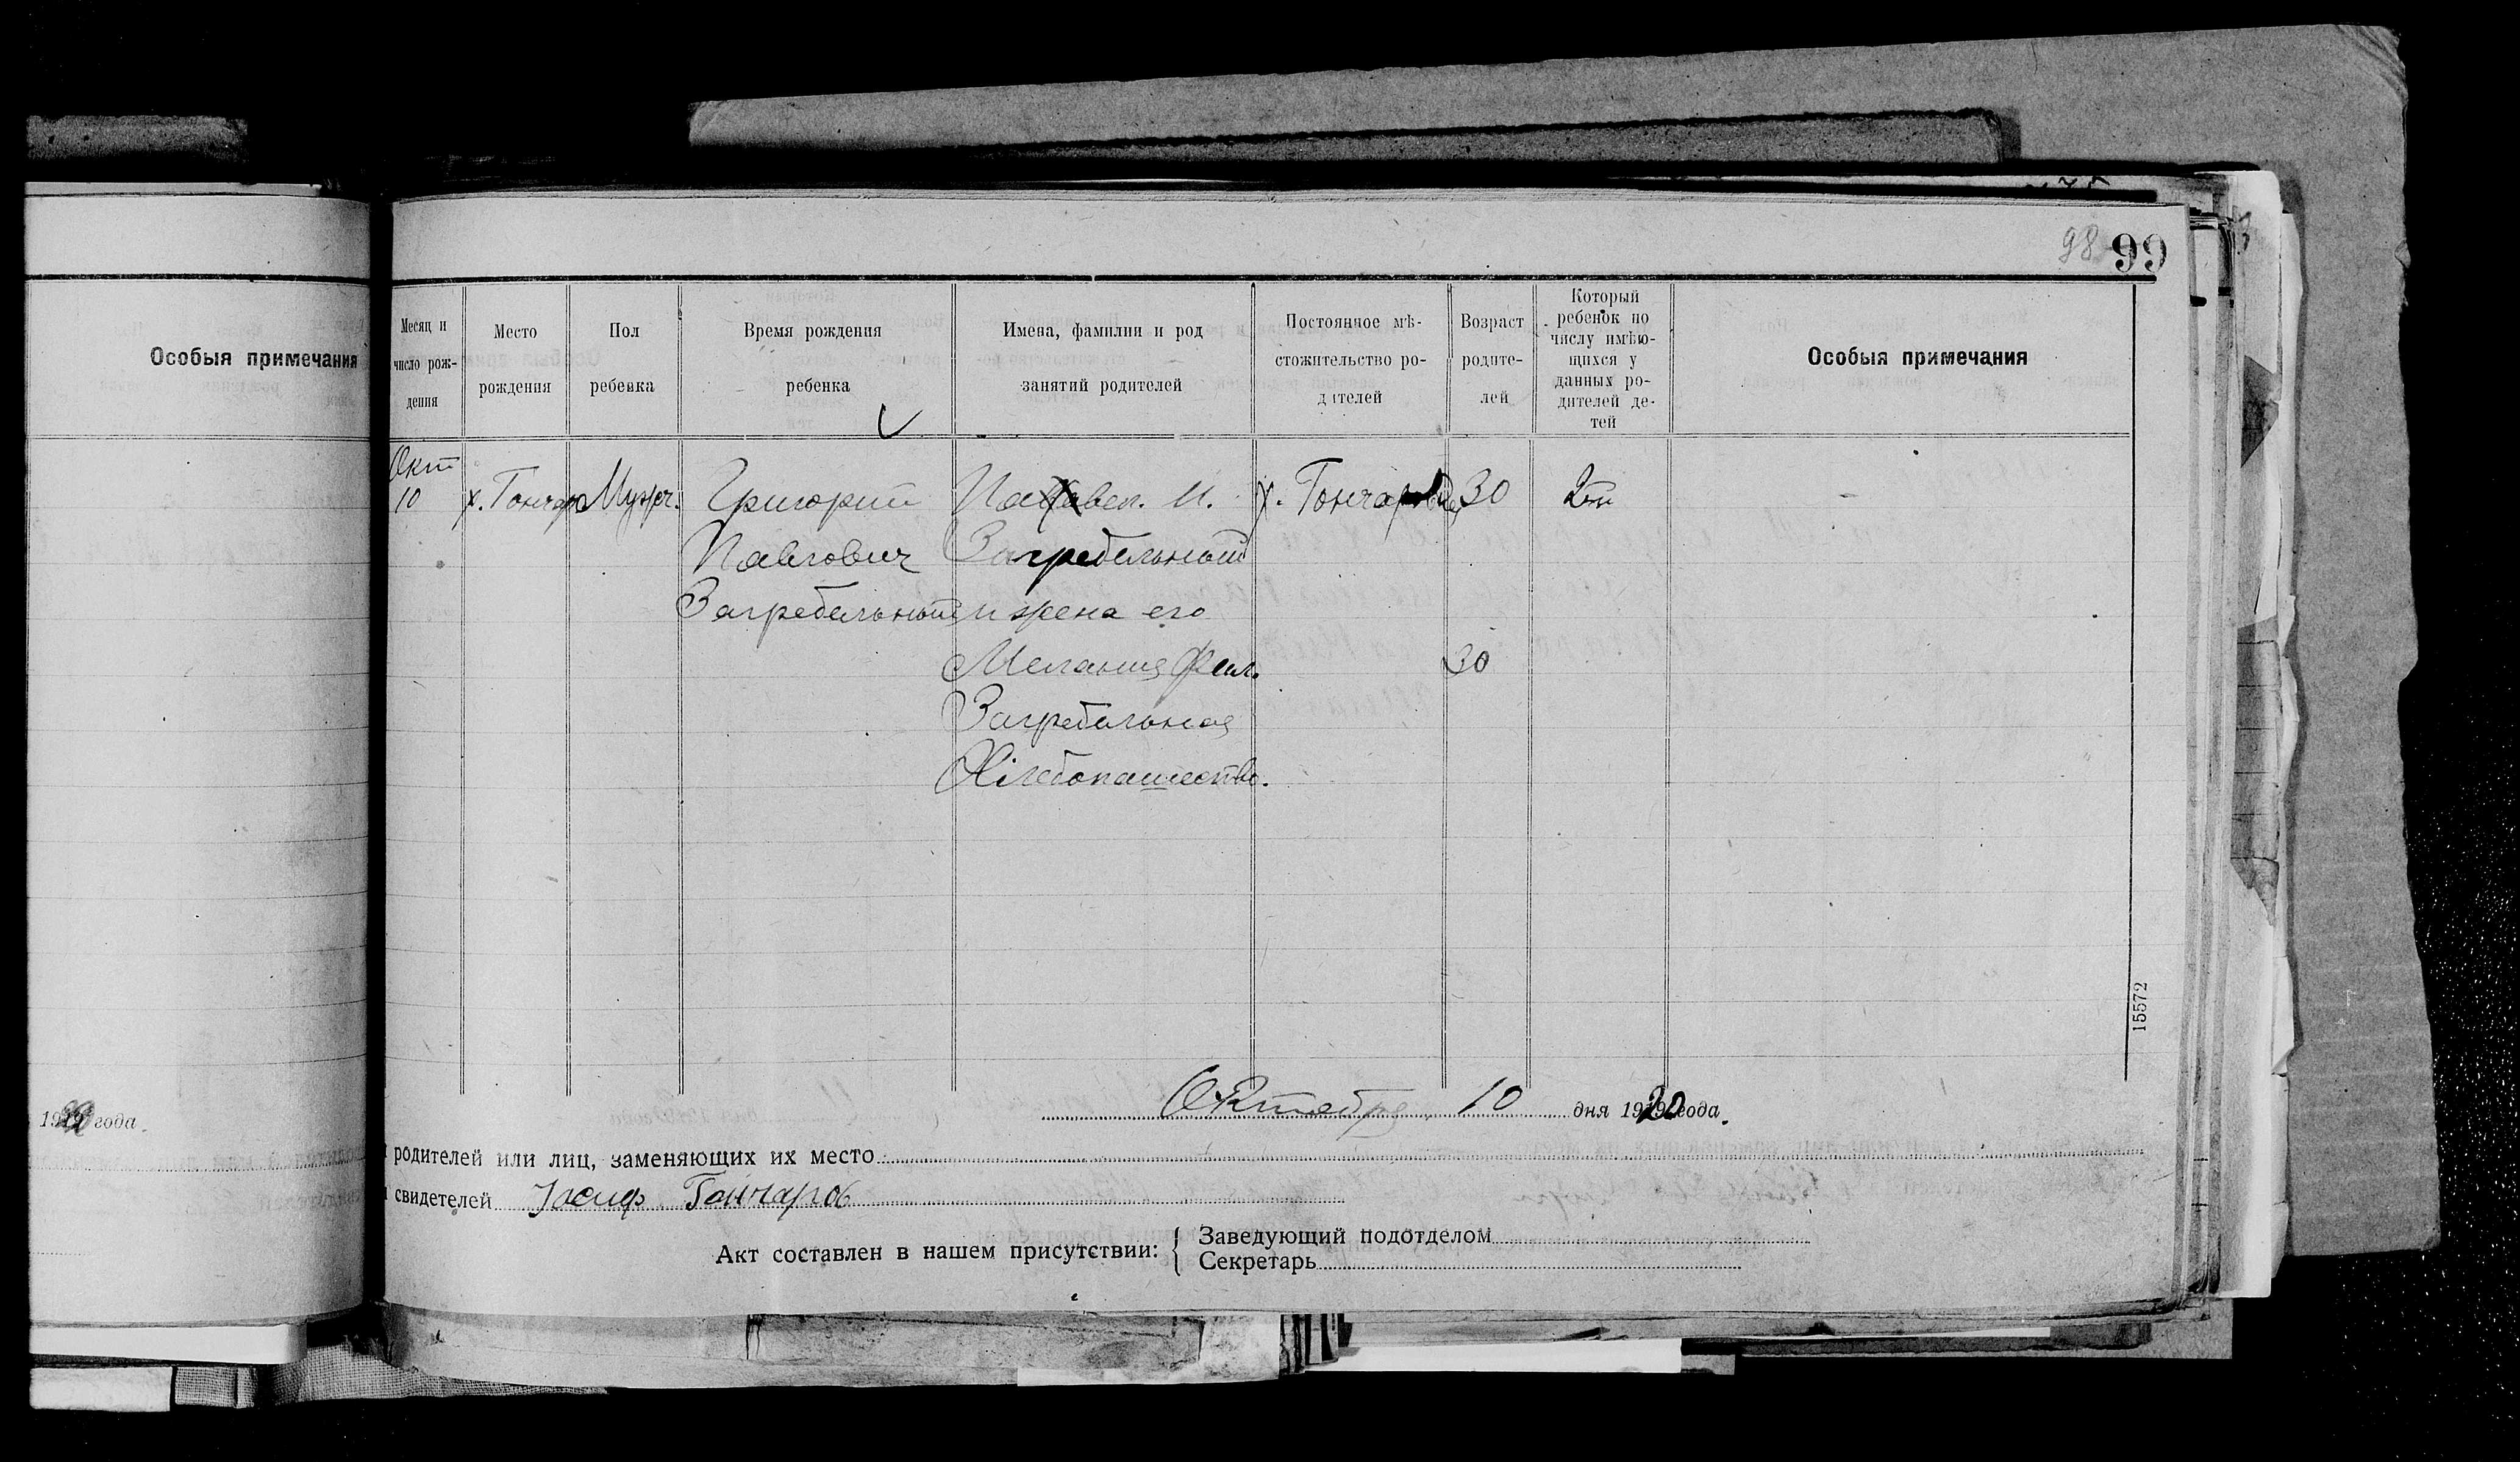 98 99
Особыя примечания
Месяц и число рож-дения
Место рождения
Пол ребенка
Время рождения ребенка
Имена, фамилии и род занятий родителей
Постоянное мѣ-стожительство ро-дителей
Возраст родите-лей
Который ребенок по числу имѣю-щихся у данных ро-дителей де-тей
Особыя примечания
Окт
10 х. Гончар Мужч. Григорий Павел. И. х. Гончаров 30 2й
Павлович Загребельный
Загребельный и жена его
Мелания Фил. 30
Загребельная
Хлебопашество.
15572
Октября 10 дня 1920 года.
19 года.
родителей или лиц, заменяющих их место
свидетелей Иосиф Гончаров
Акт составлен в нашем присутствии:
Заведующий подотделом
Секретарь